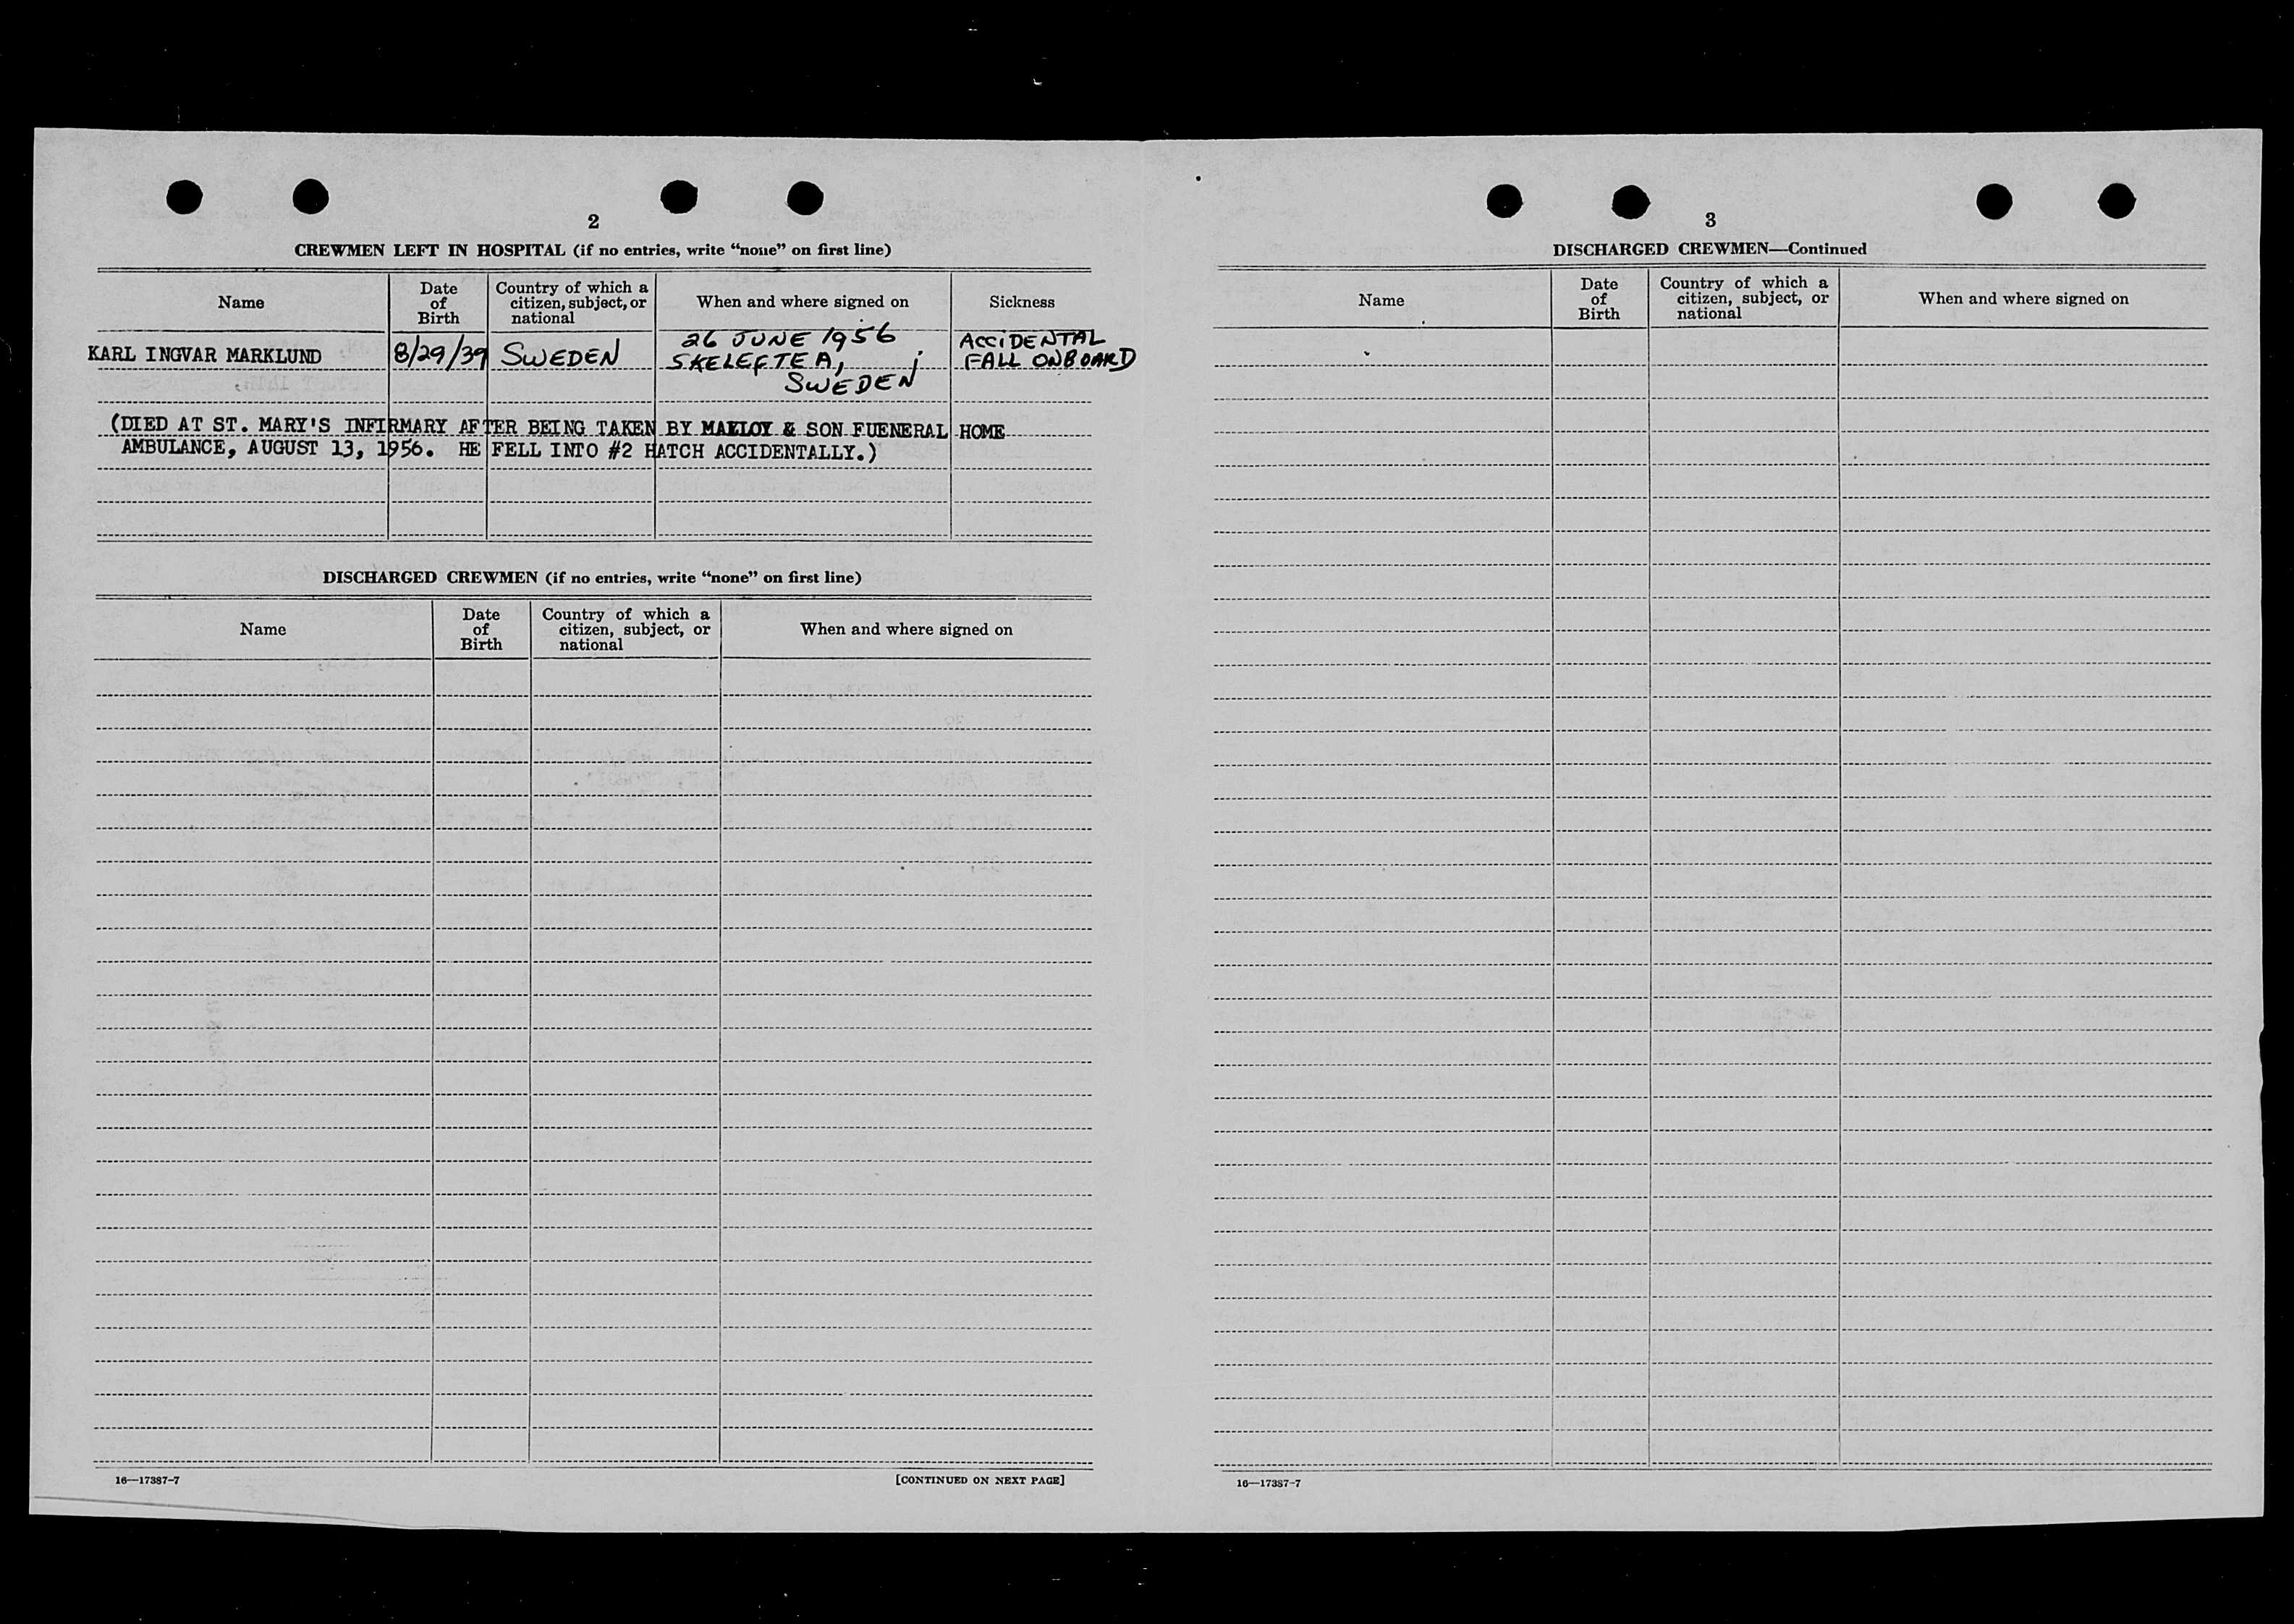 2
CREWMEN LEFT IN HOSPITAL (if no entries, write “none” on first line)
Name
Date of Birth
Country of which a citizen, subject, or national
When and where signed on
Sickness
KARL INGVAR MARKLUND
8/29/39
SWEDEN
26 JUNE 1956
SKELEFTEA,
SWEDEN
ACCIDENTAL
FALL ONBOARD
(DIED AT ST. MARY'S INFIRMARY AFTER BEING TAKEN BY MALLOY & SON FUENERAL HOME
AMBULANCE, AUGUST 13, 1956. HE FELL INTO #2 HATCH ACCIDENTALLY.)
DISCHARGED CREWMEN (if no entries, write “none” on first line)
Name
Date
of
Birth
Country of which a
citizen, subject, or
national
When and where signed on
16—17387-7
[CONTINUED ON NEXT PAGE]
3
DISCHARGED CREWMEN—Continued
Name
Date
of
Birth
Country of which a
citizen, subject, or
national
When and where signed on
16—17387-7